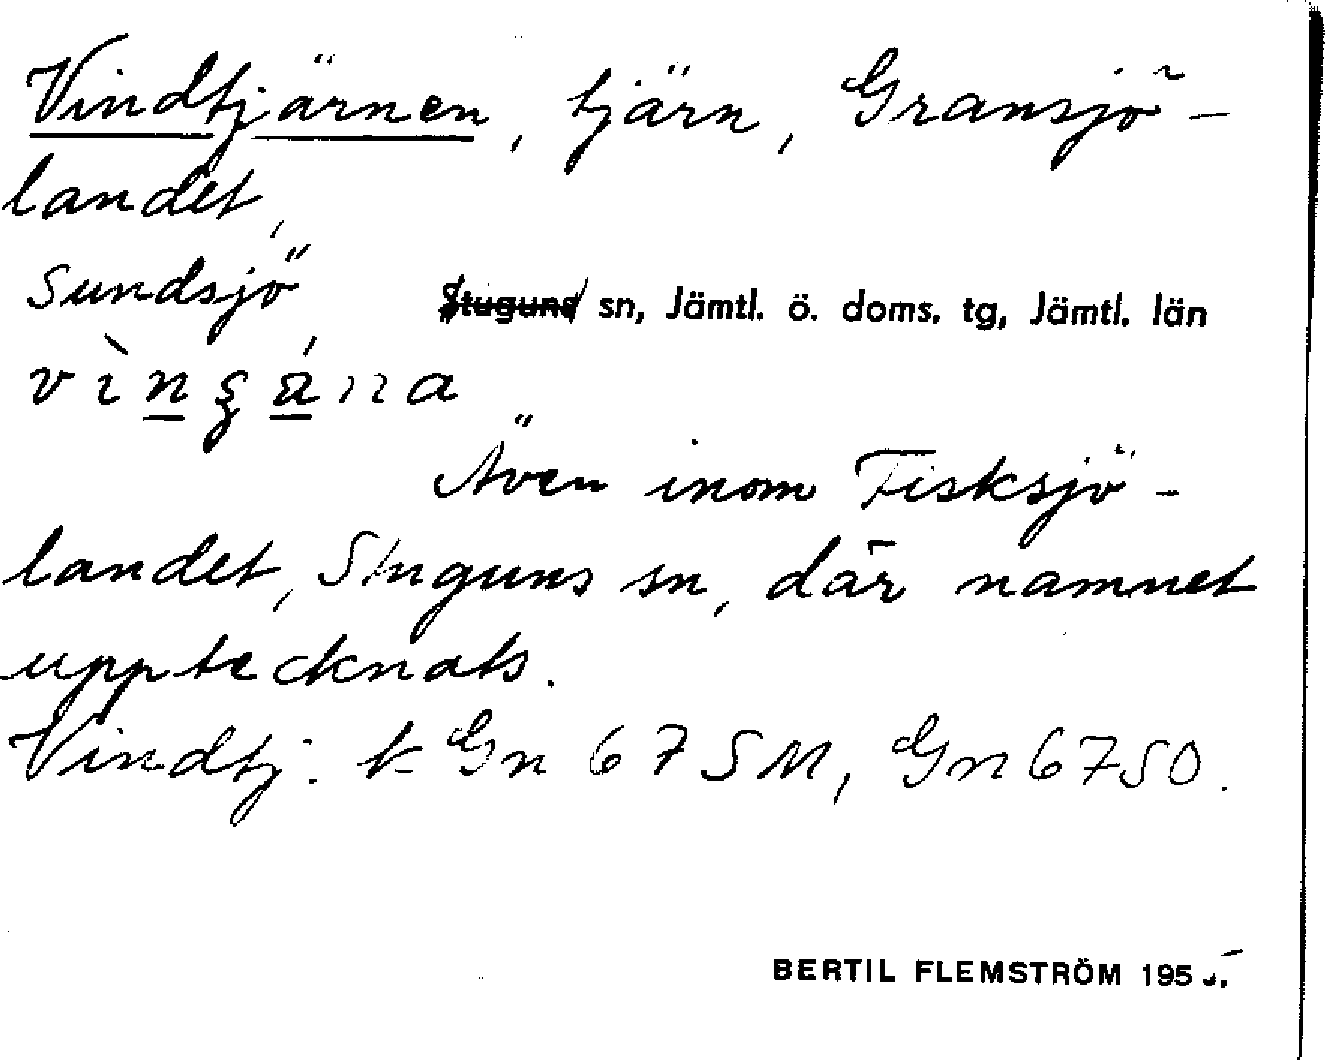 Vindtjärnen, tjärn, Gransjö-
landet,
Sundsjö Stuguns sn, Jämtl. ö. doms. tg, Jämtl. län
Även inom Fisksjö-
landet, Stuguns sn, där namnet
upptecknats.
Vindtj: k Gn 67 SM, Gn 67 SO.
BERTIL FLEMSTRÖM 1955.